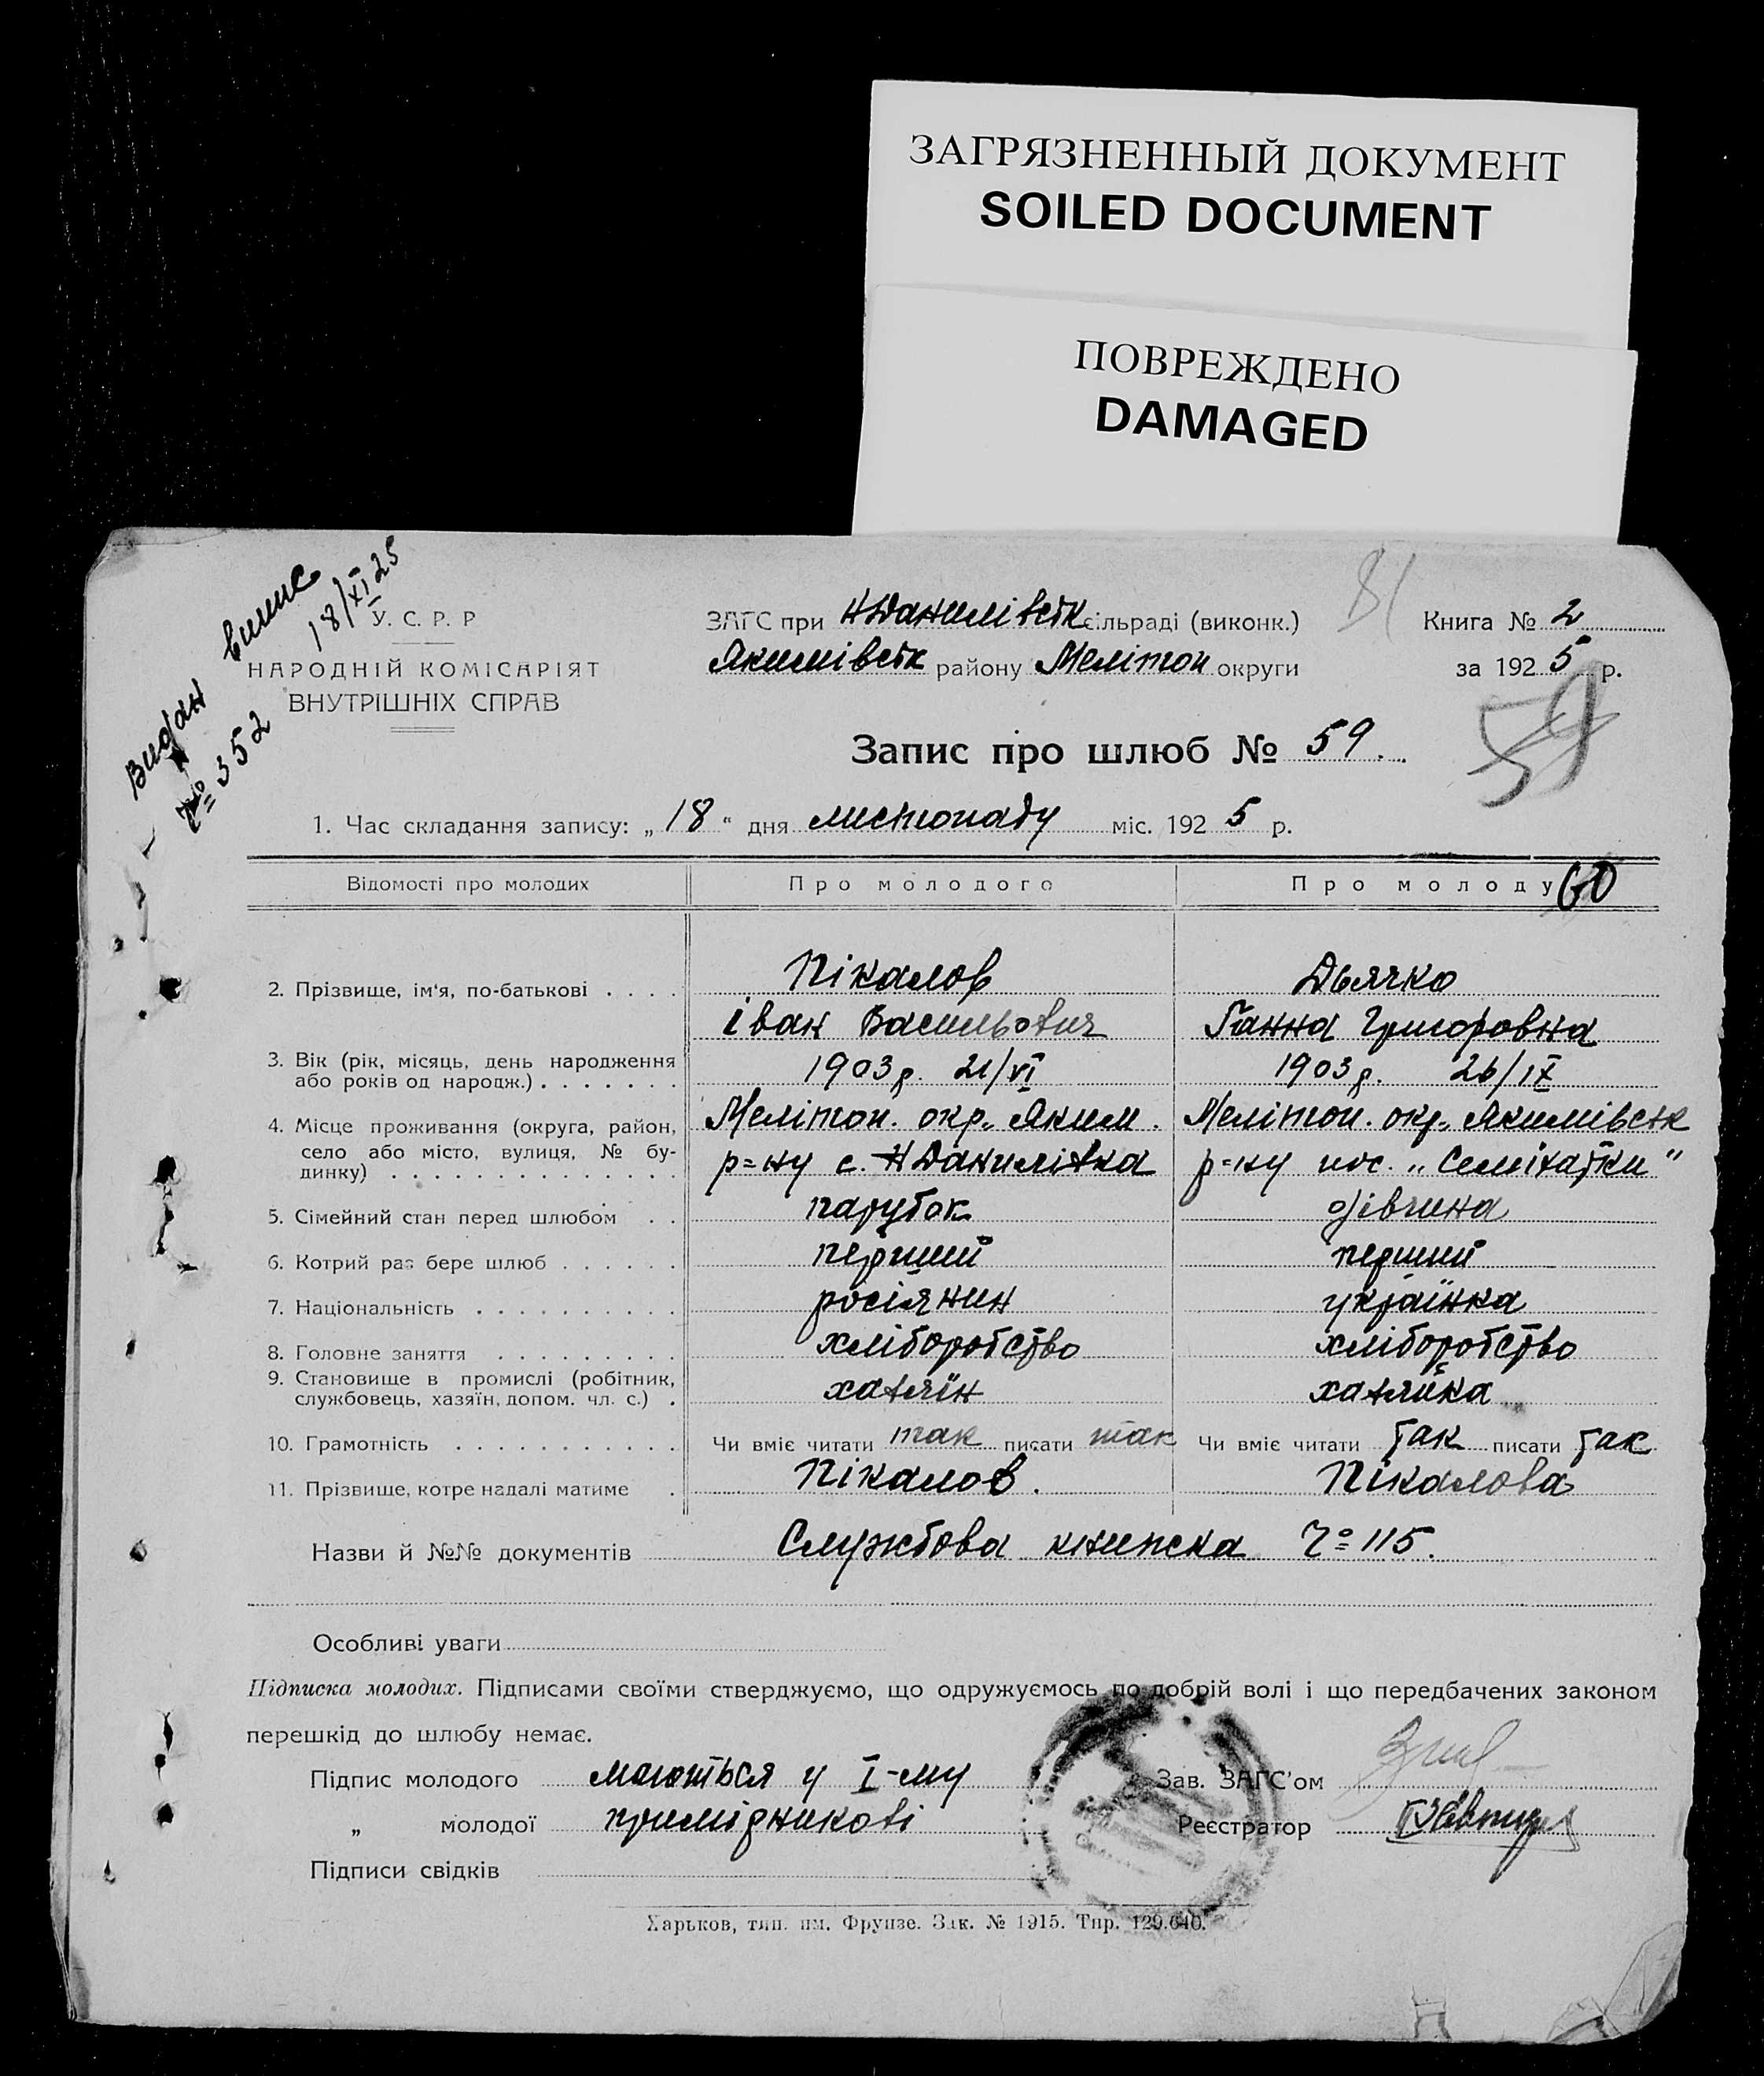 ЗАГРЯЗНЕННЫЙ ДОКУМЕНТ
SOILED DOCUMENT
ПОВРЕЖДЕНО
DAMAGED
Видан випис
№ 352 18/XI 25
У. С. Р. Р
НАРОДНІЙ КОМІСАРІЯТ
ВНУТРІШНІХ СПРАВ
ЗАГС при НДанилівськ сільраді (виконк.)
Якимівськ району Мелітоп округи
81
Книга № 2
за 1925 р.
Запис про шлюб № 59.
59
1. Час складання запису: „18“ дня листопаду міс. 1925 р.
Відомості про молодих Про молодого Про молоду 60
2. Прізвище, ім'я, по-батькові . . . . Пікалов Дьячко
Іван Васильович Ганна Григоровна
3. Вік (рік, місяць, день народження 1903 р. 21/VI 1903 р. 26/IX
або років од народж.) . . . . . . .
4. Місце проживання (округа, район, Мелітоп. окр. Яким. Мелітоп. окр. Якимівськ
село або місто, вулиця, № бу- р=ну с. НДанилівка р=ну пос. „Семіхатки“
динку) . . . . . . . . . . . . . .
5. Сімейний стан перед шлюбом . . парубок дівчина
6. Котрий раз бере шлюб . . . . . . перший перший
7. Національність . . . . . . . . . . росіянин українка
8. Головне заняття . . . . . . . . . хліборобство хліборобство
9. Становище в промислі (робітник, хазяїн хазяйка
службовець, хазяїн, допом. чл. с.) .
10. Грамотність . . . . . . . . . . . Чи вміє читати так писати так Чи вміє читати так писати так
11. Прізвище, котре надалі матиме . Пікалов. Пікалова
Назви й №№ документів Службова книжка Ч° 115.
Особливі уваги
Підписка молодих. Підписами своїми стверджуємо, що одружуємось по добрій волі і що передбачених законом
перешкід до шлюбу немає.
Підпис молодого маються у I-му Зав. ЗАГС'ом
„ молодої примірникові Реєстратор
Підписи свідків
Харьков, тип. им. Фрунзе. Зак. № 1915. Тир. 129.640.